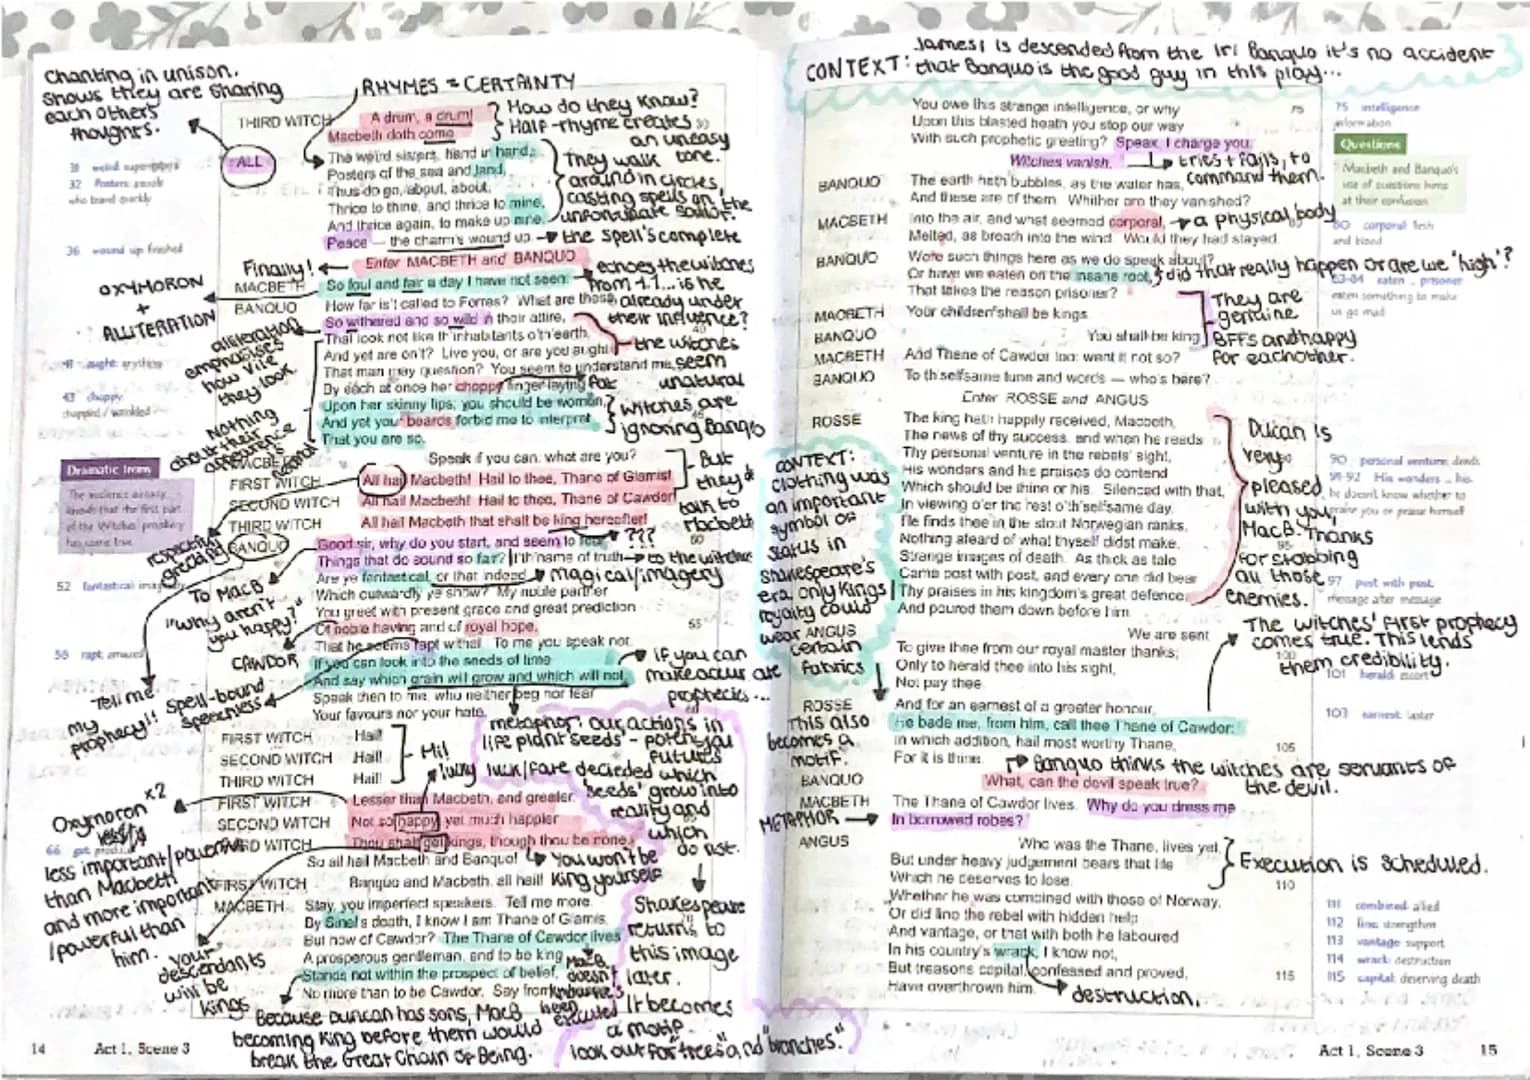 Chanting in unison.
Shows they are sharing
each others
thoughts.
RHYMES = CERTAINTY
How do they know?
Half-rhyme creates
an uneasy
tone.
THIRD WITCH A drum, a drum!
Macbeth doth come.
ALL The weird sisters, hand in hand,
Posters of the sea and land,
Thus do go, about, about,
Thrice to thine, and thrice to mine,
And thrice again, to make up nine.
Peace – the charm's wound up
They walk
around in circles,
casting spells on
the
unfortunate sailor.
the spell's complete
32 Posters: people
who travel quickly
36 wound up: finished
Finally!
Enter MACBETH and BANQUO
MACBETH So foul and fair a day I have not seen.
BANQUO How far is't called to Forres? What are these,
So withered and so wild in their attire,
That look not like th'inhabitants o'th'earth,
And yet are on't? Live you, or are you aught
That man may question? You seem to understand me,
By each at once her choppy finger laying
Upon her skinny lips; you should be women,
And yet your beards forbid me to interpret
That you are so.
echoes the witches
from 1.1... is he
already under
their influence?
OXYMORON
+
ALLITERATION
alliteration
emphasises
how vile
they look
the witches
seem
unnatural
witches are
ignoring Banquo
Nothing
about their
appearance
41 aught: anything
43 choppy:
chapped / wrinkled
Dramatic irony
The audience already
knows that the first part
of the Witches' prophecy
has come true.
MACBETH Speak if you can: what are you?
FIRST WITCH All hail Macbeth! Hail to thee, Thane of Glamis!
SECOND WITCH All hail Macbeth! Hail to thee, Thane of Cawdor!
THIRD WITCH All hail Macbeth that shall be king hereafter!
But
they do
talk to
Macbeth
greeting
BANQUO Good sir, why do you start, and seem to fear
Things that do sound so fair? I'th'name of truth
Are ye fantastical, or that indeed
Which outwardly ye show? My noble partner
You greet with present grace and great prediction
Of noble having and of royal hope, 55
That he seems rapt withal. To me you speak not.
If you can look into the seeds of time
And say which grain will grow and which will not,
Speak then to me, who neither beg nor fear
Your favours nor your hate.
???
to the witches
magical/imagery
To MacB
"Why aren't
you happy?"
CAWDOR
Spell-bound
speechless
Tell me
my
prophecy!!
if you can
make occur are
prophecies...
metaphor: our actions in
life plant 'seeds' - potential
futures
luck/fate decided which
'seeds' grow into
reality and
which
do not.
FIRST WITCH Hail!
SECOND WITCH Hail!
THIRD WITCH Hail!
Hi!
lucky
FIRST WITCH Lesser than Macbeth, and greater.
SECOND WITCH Not so happy, yet much happier.
THIRD WITCH Thou shalt get kings, though thou be none.
So all hail Macbeth and Banquo!
FIRST WITCH Banquo and Macbeth, all hail!
You won't be
King yourself
MACBETH Stay, you imperfect speakers. Tell me more.
By Sinel's death, I know I am Thane of Glamis.
But how of Cawdor? The Thane of Cawdor lives
A prosperous gentleman, and to be king
Stands not within the prospect of belief,
No more than to be Cawdor. Say from
Oxymoron x2
less important/powerful
than Macbeth
and more important
/powerful than
him.
your
descendants
will be
kings
Shakespeare
returns to
this image
later.
It becomes
a motif.
look out for "trees" and "branches."
Because Duncan has sons, MacB
becoming King before them would
break the Great Chain of Being.
14 Act 1, Scene 3
CONTEXT: James I is descended from the Banquo it's no accident
that Banquo is the good guy in this play...
You owe this strange intelligence, or why 75
Upon this blasted heath you stop our way
With such prophetic greeting? Speak, I charge you.
Witches vanish.
tries + fails, to
command them.
75 intelligence
information
Questions
Macbeth and Banquo's
use of questions hints
at their confusion
BANQUO The earth hath bubbles, as the water has,
And these are of them. Whither are they vanished?
MACBETH Into the air, and what seemed corporal,
Melted, as breath into the wind. Would they had stayed.
a physical body
80 corporal: flesh
and blood
BANQUO Were such things here as we do speak about?
Or have we eaten on the insane root,
That takes the reason prisoner?
did that really happen or are we 'high'?
83-84 eaten .. prisoner
eaten something to make
us go mad
MACBETH Your children shall be kings.
BANQUO You shall be king.
MACBETH And Thane of Cawdor too: went it not so?
BANQUO To th'selfsame tune and words – who's here?
They are
genuine
BFFs and happy
for eachother.
Enter ROSSE and ANGUS
ROSSE The king hath happily received, Macbeth,
The news of thy success, and when he reads
Thy personal venture in the rebels' sight,
His wonders and his praises do contend
Which should be thine or his. Silenced with that,
In viewing o'er the rest o'th'selfsame day,
He finds thee in the stout Norwegian ranks,
Nothing afeard of what thyself didst make,
Strange images of death. As thick as tale
Came post with post, and every one did bear
Thy praises in his kingdom's great defence,
And poured them down before him.
Ducan is
very
pleased
with you,
MacB. Thanks
for stabbing
all those
enemies.
90 personal venture: deeds
91-92 His wonders .. his:
he doesn't know whether to
praise you or praise himself
97 post with post:
message after message
CONTEXT:
clothing was
an important
symbol of
status in
Shakespeare's
era. only Kings/
royalty could
wear
certain
fabrics
This also
becomes a
motif.
ANGUS We are sent
To give thee from our royal master thanks;
Only to herald thee into his sight,
Not pay thee.
The witches' first prophecy
comes true. This lends
them credibility.
101 herald: escort
ROSSE And for an earnest of a greater honour,
He bade me, from him, call thee Thane of Cawdor:
In which addition, hail most worthy Thane, 105
For it is thine.
103 earnest: taster
Banquo thinks the witches are servants of
the devil.
BANQUO What, can the devil speak true?
MACBETH The Thane of Cawdor lives. Why do you dress me
In borrowed robes?
METAPHOR
ANGUS Who was the Thane, lives yet,
But under heavy judgement bears that life
Which he deserves to lose. 110
Whether he was combined with those of Norway,
Or did line the rebel with hidden help
And vantage, or that with both he laboured
In his country's wrack, I know not,
But treasons capital, confessed and proved, 115
Have overthrown him.
Execution is scheduled.
destruction.
111 combined: allied
112 line: strengthen
113 vantage: support
114 wrack: destruction
115 capital: deserving death
Act 1, Scene 3 15